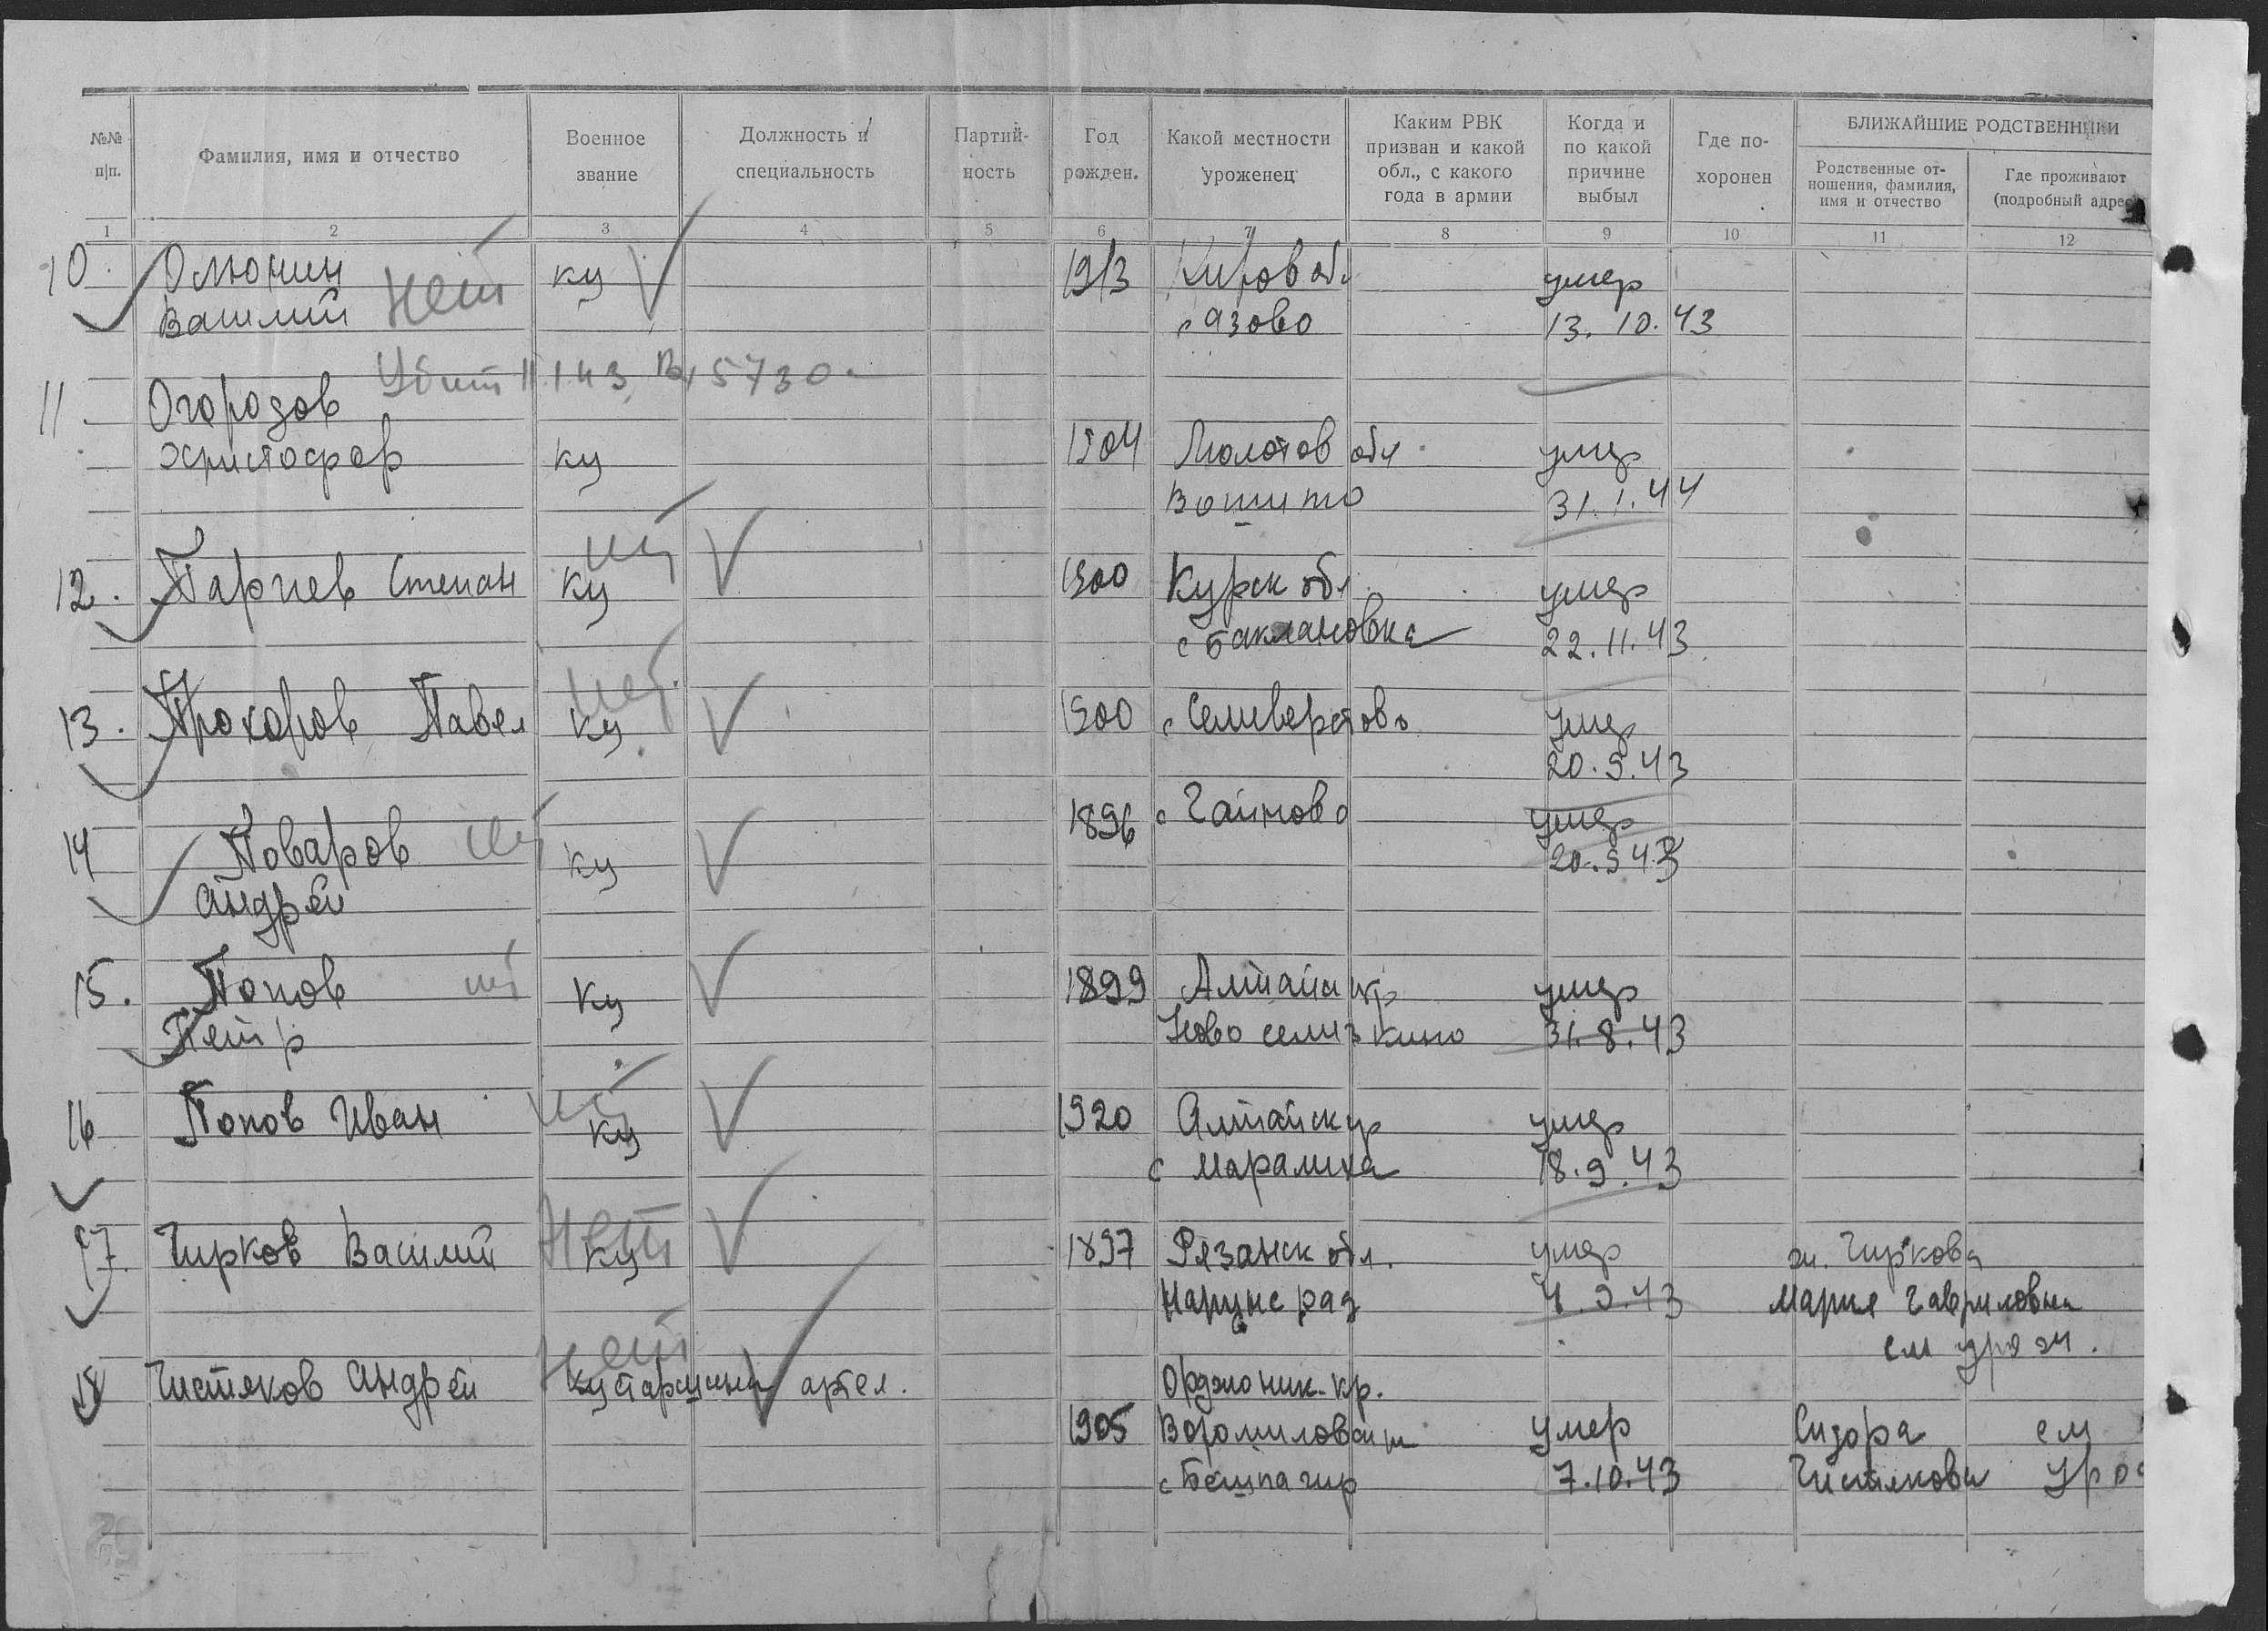 №№ п|п.
Фамилия, имя и отчество
Военное звание
Должность и специальность
Партий-ность
Год рожден.
Какой местности уроженец
Каким РВК призван и какой обл., с какого года в армии
Когда и по какой причине выбыл
Где по-хоронен
БЛИЖАЙШИЕ РОДСТВЕННИКИ
Родственные от-ношения, фамилия, имя и отчество
Где проживают (подробный адрес
1 2 3 4 5 6 7 8 9 10 11 12
10. Олюнин нет кц 1913 Киров обл умер
Василий с Язово 13.10.43
Убит 11.1.43 15730
11. Огородов
Христофор кц 1904 Молотов обл умер
31.1.44
нет
12. Париев Степан кц 1900 Курск обл. умер
с Баклановка 22.11.43
нет.
13. Прохоров Павел кц 1900 с Селиверстово умер
20.9.43
14 Поваров нет кц 1896 с Чайново умер
Андрей 20.9.43
15. Попов нет кц 1899 Алтайск кр умер
Петр Ново селизкино 31.8.43
нет
16 Попов Иван кц 1920 Алтайск кр умер
с Маралиха 18.9.43
нет
17. Чирков Василий кц 1897 Рязанск обл. умер ж. Чиркова
4.9.43 Мария Гавриловна
см урож.
нет
18 Чистяков Андрей кц старшина артел. Орджоник. кр.
1905 Ворошиловск умер Сидора см
с Бешпагир 7.10.43 Чистякова уро